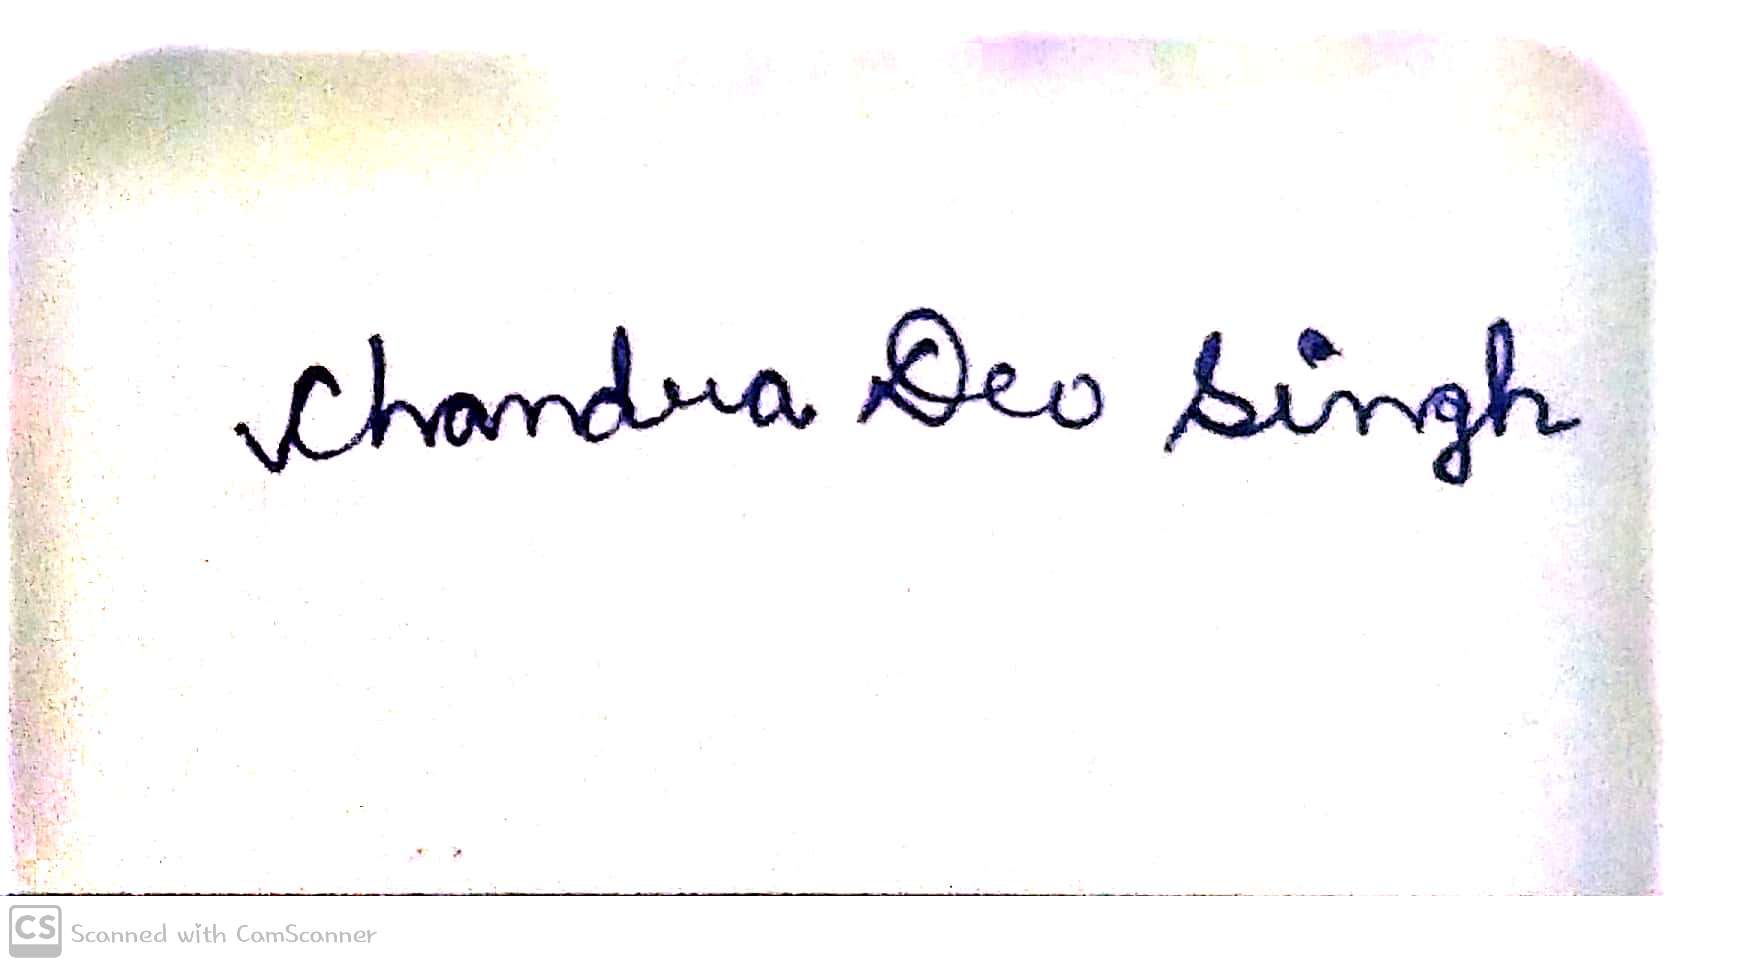 Chandra Deo Singh
CS Scanned with CamScanner